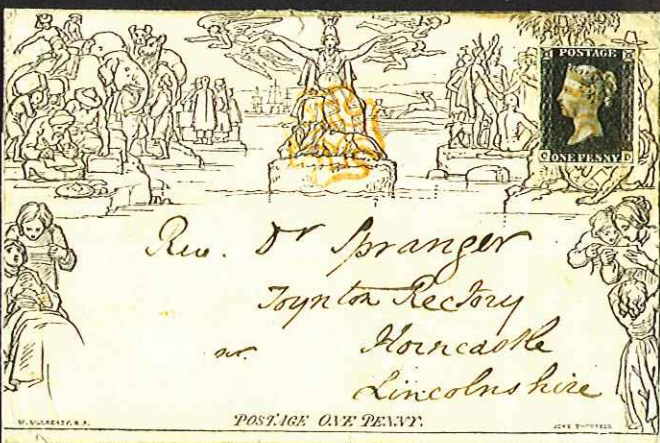 POSTAGE
C ONE PENNY D
Rev. Dr Spranger
Toynton Rectory
nr. Horncastle
Lincolnshire
W. MULREADY, R.A.
POSTAGE ONE PENNY.
JOHN THOMPSON